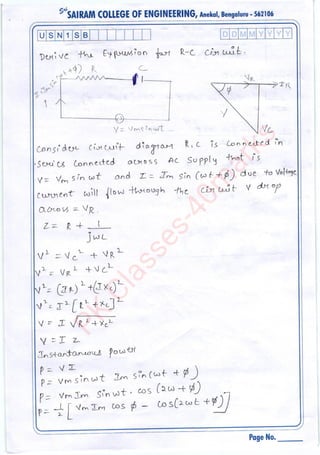 Sri SAIRAM COLLEGE OF ENGINEERING, Anekal, Bengaluru - 562106
U S N 1 S B
D D M M Y Y Y Y
Derive the Expression for R-C circuit.
I = Im(2 wt + ϕ) R C
V = Vm sin wt
VR
IR
ϕ
V
VC
Consider circuit diagram R, C is connected in
series connected across AC supply that is
V = Vm sin wt and I = Im sin (wt + ϕ) due to Voltage
current will flow through the circuit V drop
across = VR.
Z = R + 1 / jwL
V² = Vc² + VR²
V² = VR² + Vc²
V² = (IR)² + (IXc)²
V² = I² [R² + Xc]²
V = I √R² + Xc²
V = I Z
Instantaneous power
P = V I
P = Vm sin wt Im sin (wt + ϕ)
P = Vm Im Sin wt . cos (2w + ϕ)
P = 1/2 [ Vm Im cos ϕ - cos (2wt + ϕ) ]
Page No.